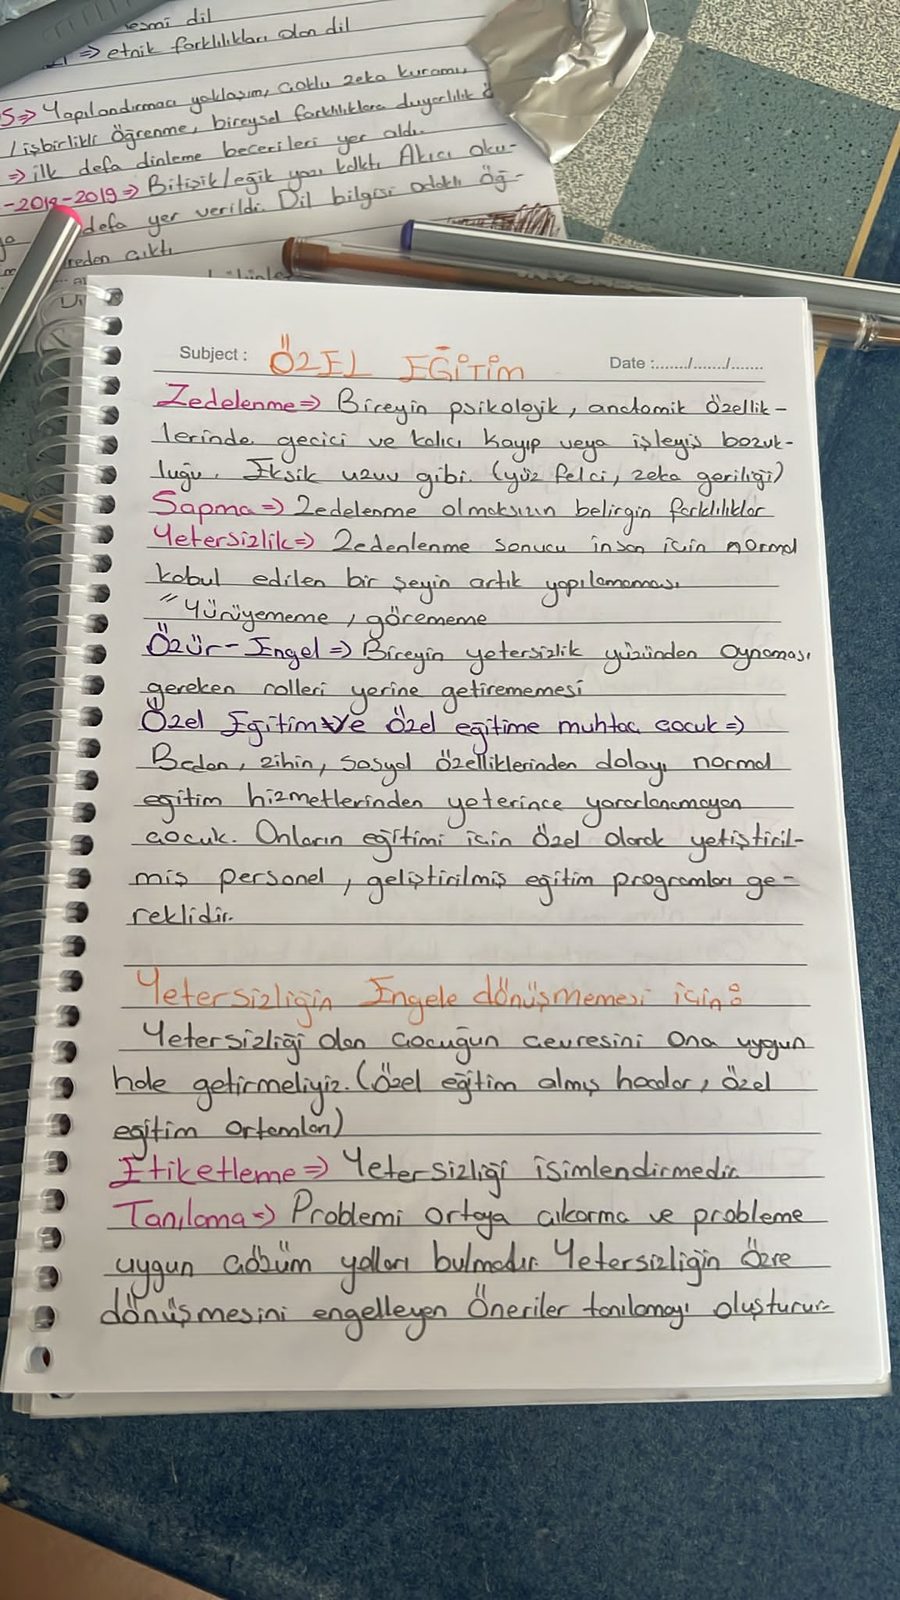 esmi dil
=> etnik farklılıkları olan dil
S=> Yapılandırmacı yaklaşım, çoklu zeka kuramı,
/ işbirlikli öğrenme, bireysel farklılıklara duyarlılık
=> ilk defa dinleme becerileri yer aldı.
-2018-2019=> Bitişik/eğik yazı kalktı. Akıcı oku-
defa yer verildi. Dil bilgisi odaklı öğ-
reden çıktı.
Subject : ÖZEL EĞİTİM Date :....../....../......
Zedelenme=> Bireyin psikolojik, anatomik özellik-
lerinde geçici ve kalıcı kayıp veya işleyiş bozuk-
luğu. Eksik uzuv gibi. (yüz felci, zeka geriliği)
Sapma=> Zedelenme olmaksızın belirgin farklılıklar
Yetersizlik=> Zedenlenme sonucu insan için normal
kabul edilen bir şeyin artık yapılamaması.
" Yürüyememe, görememe
Özür-Engel=> Bireyin yetersizlik yüzünden oynaması
gereken rolleri yerine getirememesi
Özel Eğitim ve özel eğitime muhtaç çocuk=>
Beden, zihin, sosyal özelliklerinden dolayı normal
eğitim hizmetlerinden yeterince yararlanamayan
çocuk. Onların eğitimi için özel olarak yetiştiril-
miş personel, geliştirilmiş eğitim programları ge-
reklidir.
Yetersizliğin Engele dönüşmemesi için:
Yetersizliği olan çocuğun çevresini ona uygun
hale getirmeliyiz. (Özel eğitim almış hocalar, özel
eğitim ortamları)
Etiketleme=> Yetersizliği isimlendirmedir.
Tanılama=> Problemi ortaya çıkarma ve probleme
uygun çözüm yolları bulmadır. Yetersizliğin özre
dönüşmesini engelleyen öneriler tanılamayı oluşturur.